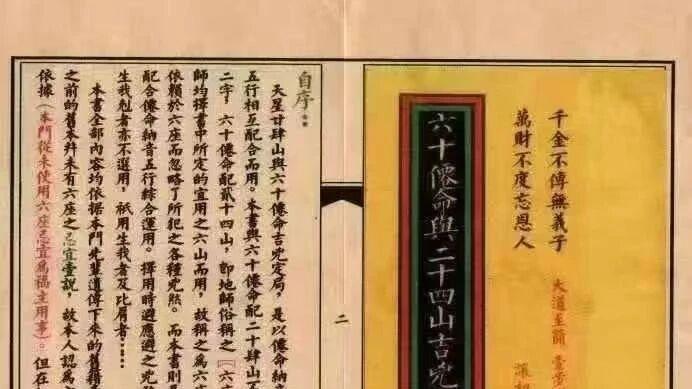 千金不傳無義子
萬財不度忘恩人
大道至簡
六十僊命與二十四山吉兇
二
自序：
天星廿肆山與六十僊命吉兇定局，是以僊命納
五行相互配合而用。本書與六十僊命配二十肆山五
二字，六十僊命配貳十四山，即地師俗稱之『六
師均擇書中所定的宜用之六山而用，故稱之為六
依賴於六座而忽略了所犯之各種兇煞。而本書則
配合僊命納音五行綜合運用。擇用時避應避之兇
生我剋者亦不選用，祇用生我者及比肩者……
本書全部內容均依据本門先輩遺傳下來的舊籍
之前的舊本并未有六座之忌宜壹說，故本人認為
依據（本門從未使用六座忌宜為福主用事）。但在